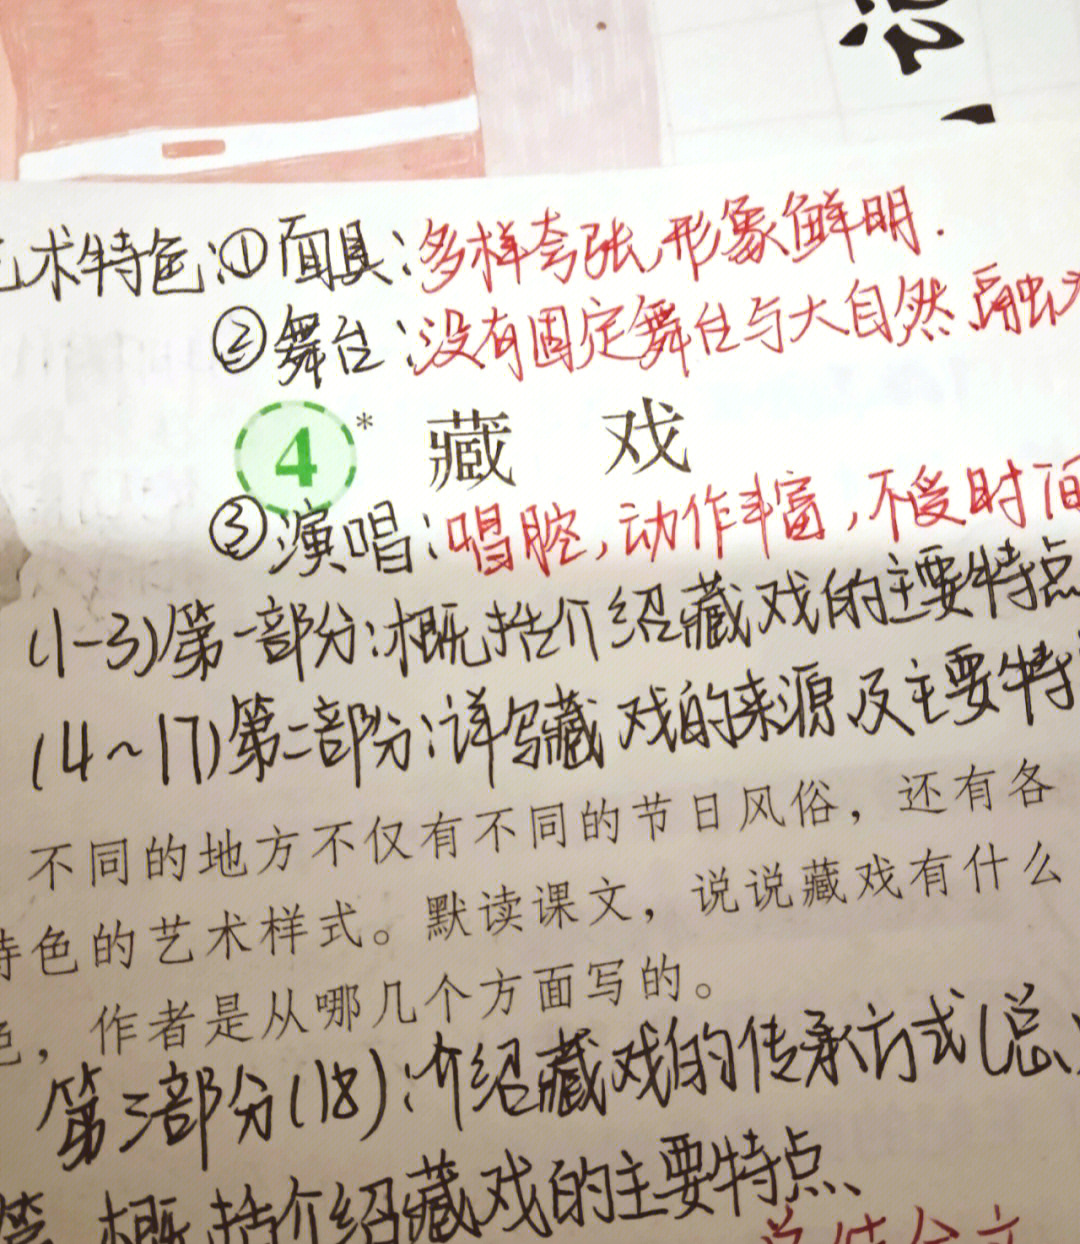 术特色:①面具:多样夸张,形象鲜明.
②舞台:没有固定舞台与大自然融为
4* 藏 戏
③演唱:唱腔,动作丰富,不受时间
(1-3)第一部分:概括介绍藏戏的主要特点
(4~17)第二部分:详写藏戏的来源及主要特
不同的地方不仅有不同的节日风俗，还有各
特色的艺术样式。默读课文，说说藏戏有什么
色，作者是从哪几个方面写的。
第三部分(18):介绍藏戏的传承方式(总)
概括介绍藏戏的主要特点、